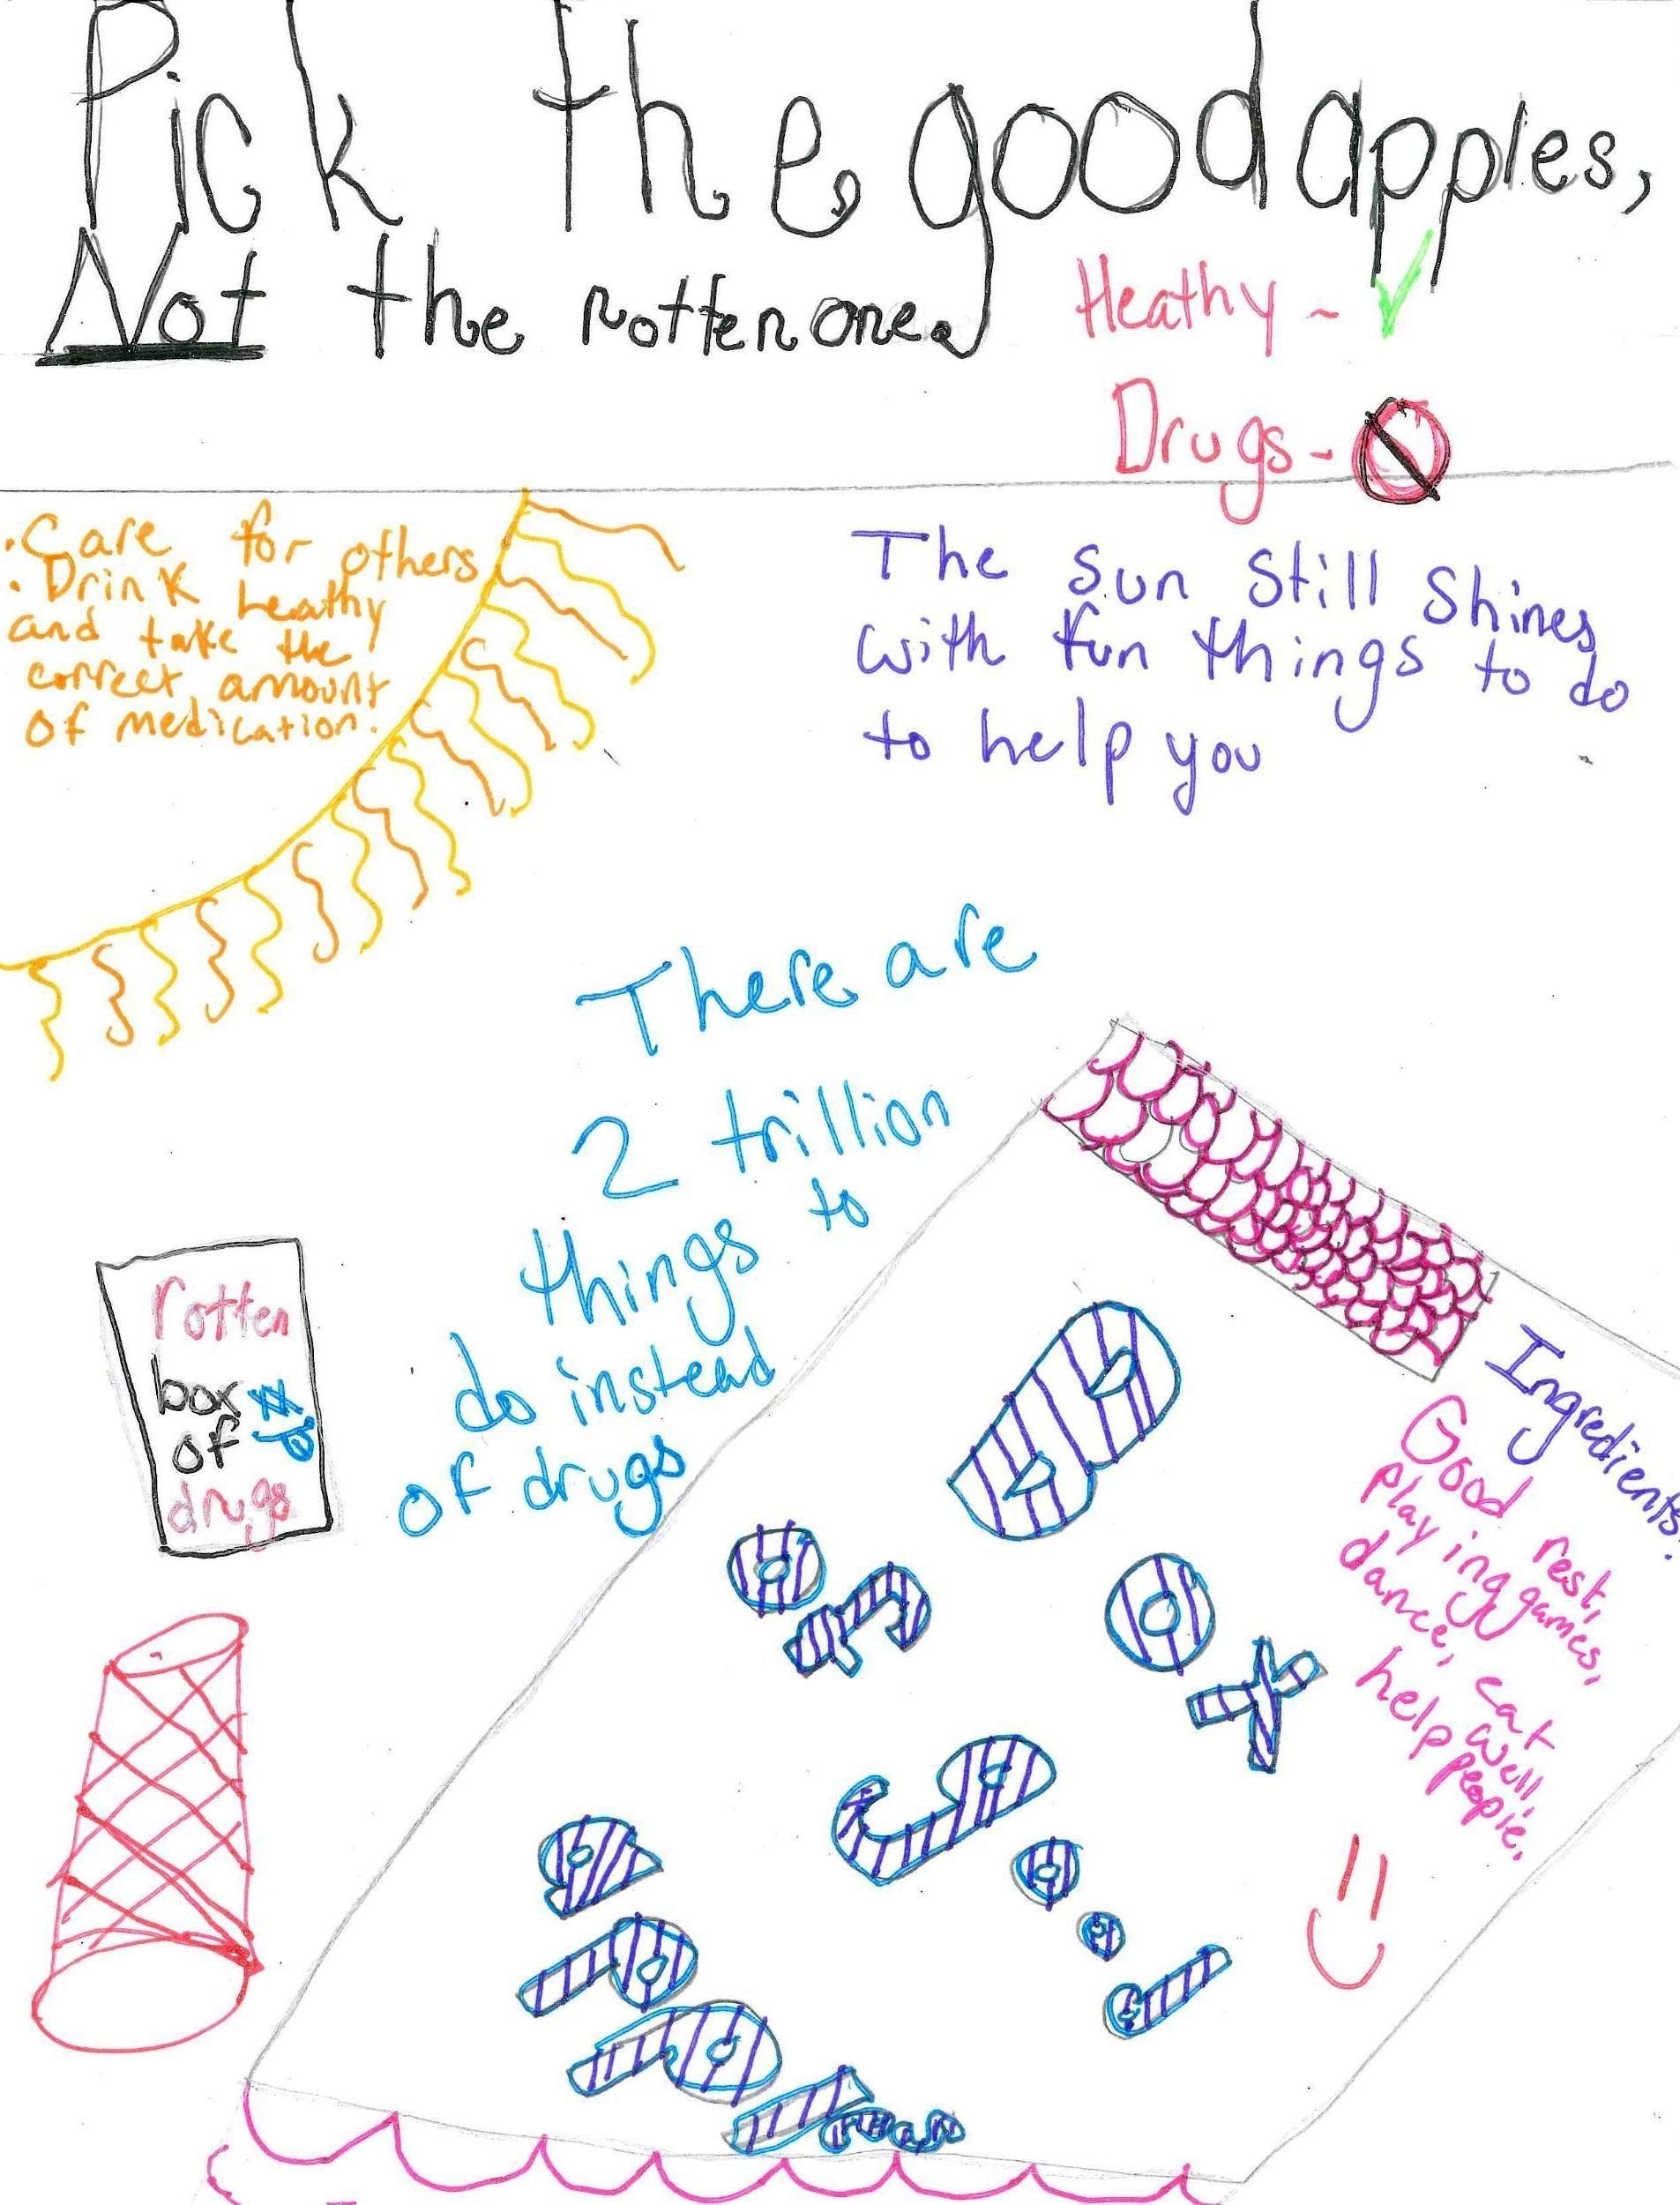 Pick the good apples,
Not the rotten one.
Heathy - ✓
Drugs -
• Care for others
• Drink heathy
and take the
correct amount
of medication.
The Sun Still Shines
with fun things to do
to help you
There are
2 trillion
things to
do instead
of drugs
rotten
box
of
drugs
Box
of
good
apples
Ingredients:
Good rest,
playing games,
dance, eat
well,
help people.